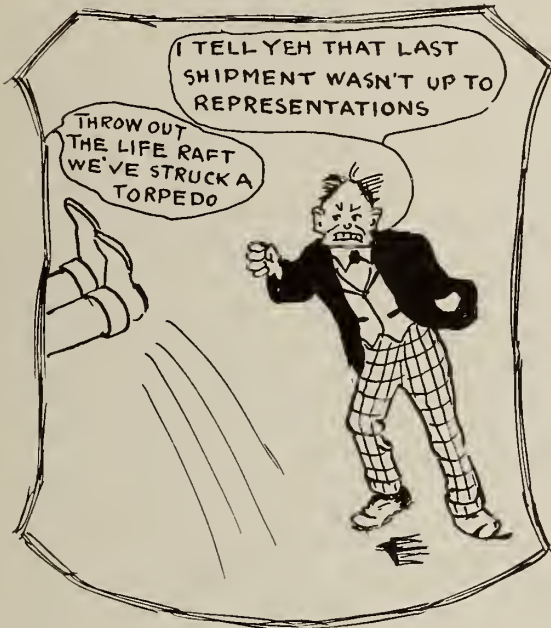 I TELL YEH THAT LAST
SHIPMENT WASN'T UP TO
REPRESENTATIONS
THROW OUT
THE LIFE RAFT
WE'VE STRUCK A
TORPEDO